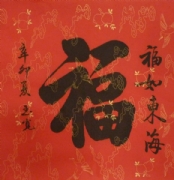 福如東海
福
辛卯夏